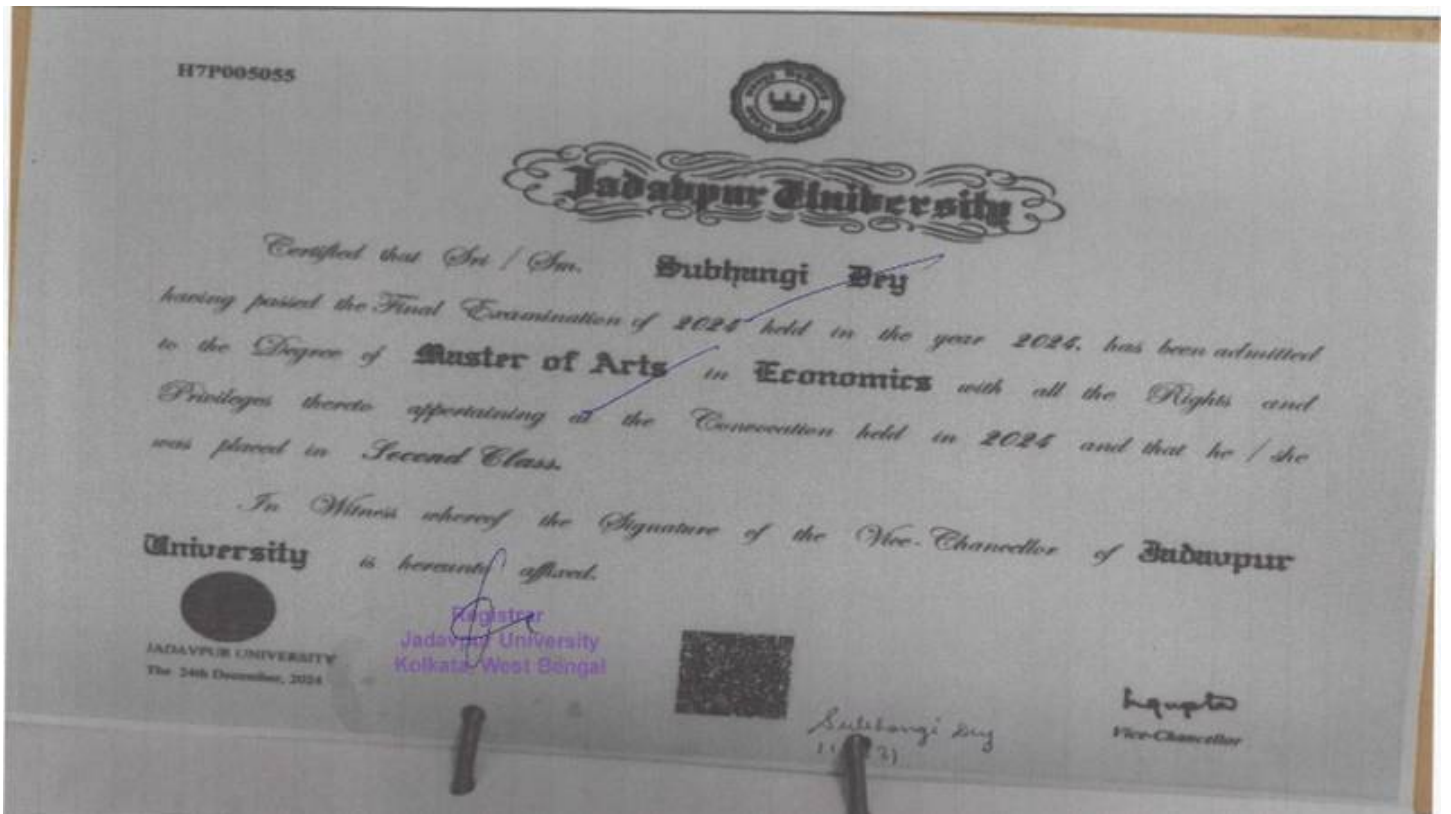 H7P005055
Jadavpur University
Certified that Sri / Sm. Subhangi Dey
having passed the Final Examination of 2024 held in the year 2024, has been admitted
to the Degree of Master of Arts in Economics with all the Rights and
Privileges thereto appertaining at the Convocation held in 2024 and that he / she
was placed in Second Class.
In Witness whereof the Signature of the Vice-Chancellor of Jadavpur
University is hereunto affixed.
Registrar
Jadavpur University
Kolkata, West Bengal
JADAVPUR UNIVERSITY
The 24th December, 2024
Subhangi Dey
Vice-Chancellor